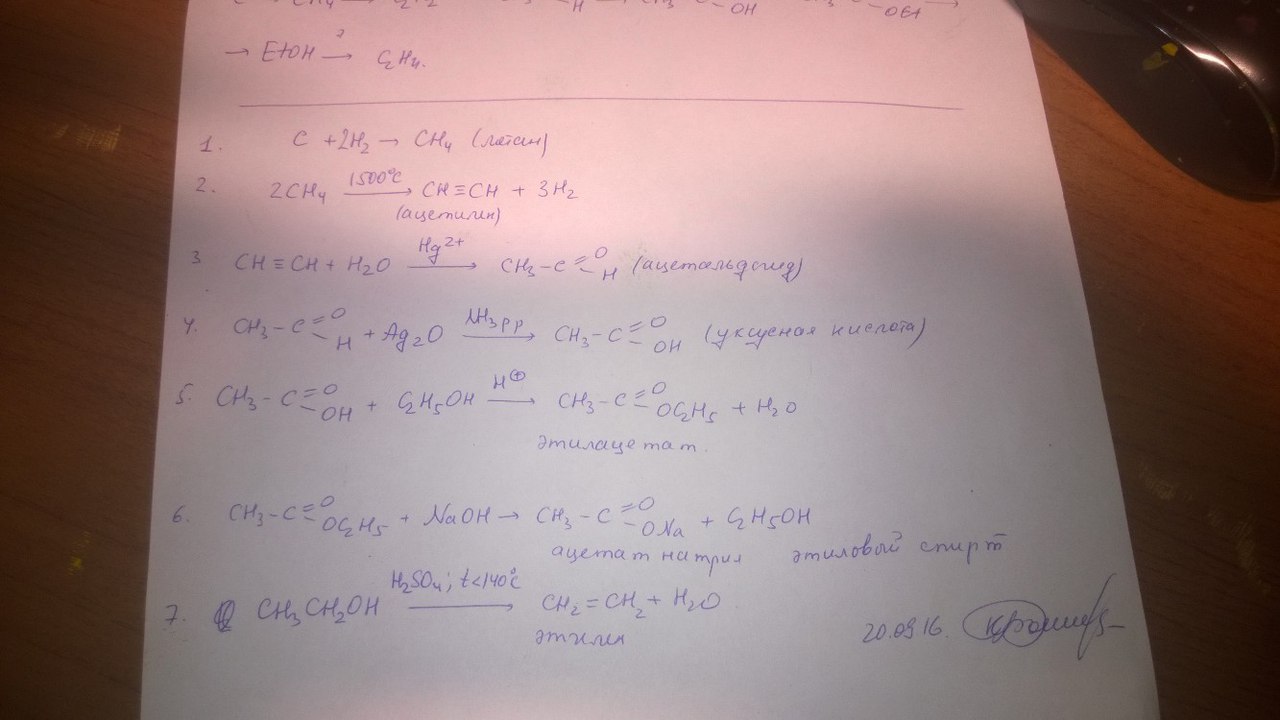 CH₄ → C₂H₂ H CH₃ OH OEt →
→ EtOH →(?) C₂H₄.
1. C + 2H₂ → CH₄ (метан)
2. 2CH₄ →(1500°C) CH≡CH + 3H₂
(ацетилин)
3 CH≡CH + H₂O →(Hg²⁺) CH₃-C(=O)-H (ацетальдегид)
4. CH₃-C(=O)-H + Ag₂O →(NH₃ рр) CH₃-C(=O)-OH (уксусная кислота)
5. CH₃-C(=O)-OH + C₂H₅OH →(H⊕) CH₃-C(=O)-OC₂H₅ + H₂O
этилацетат.
6. CH₃-C(=O)-OC₂H₅ + NaOH → CH₃-C(=O)-ONa + C₂H₅OH
ацетат натрия этиловый спирт
7. CH₃CH₂OH →(H₂SO₄; t<140°C) CH₂=CH₂ + H₂O
этилин
20.09.16.